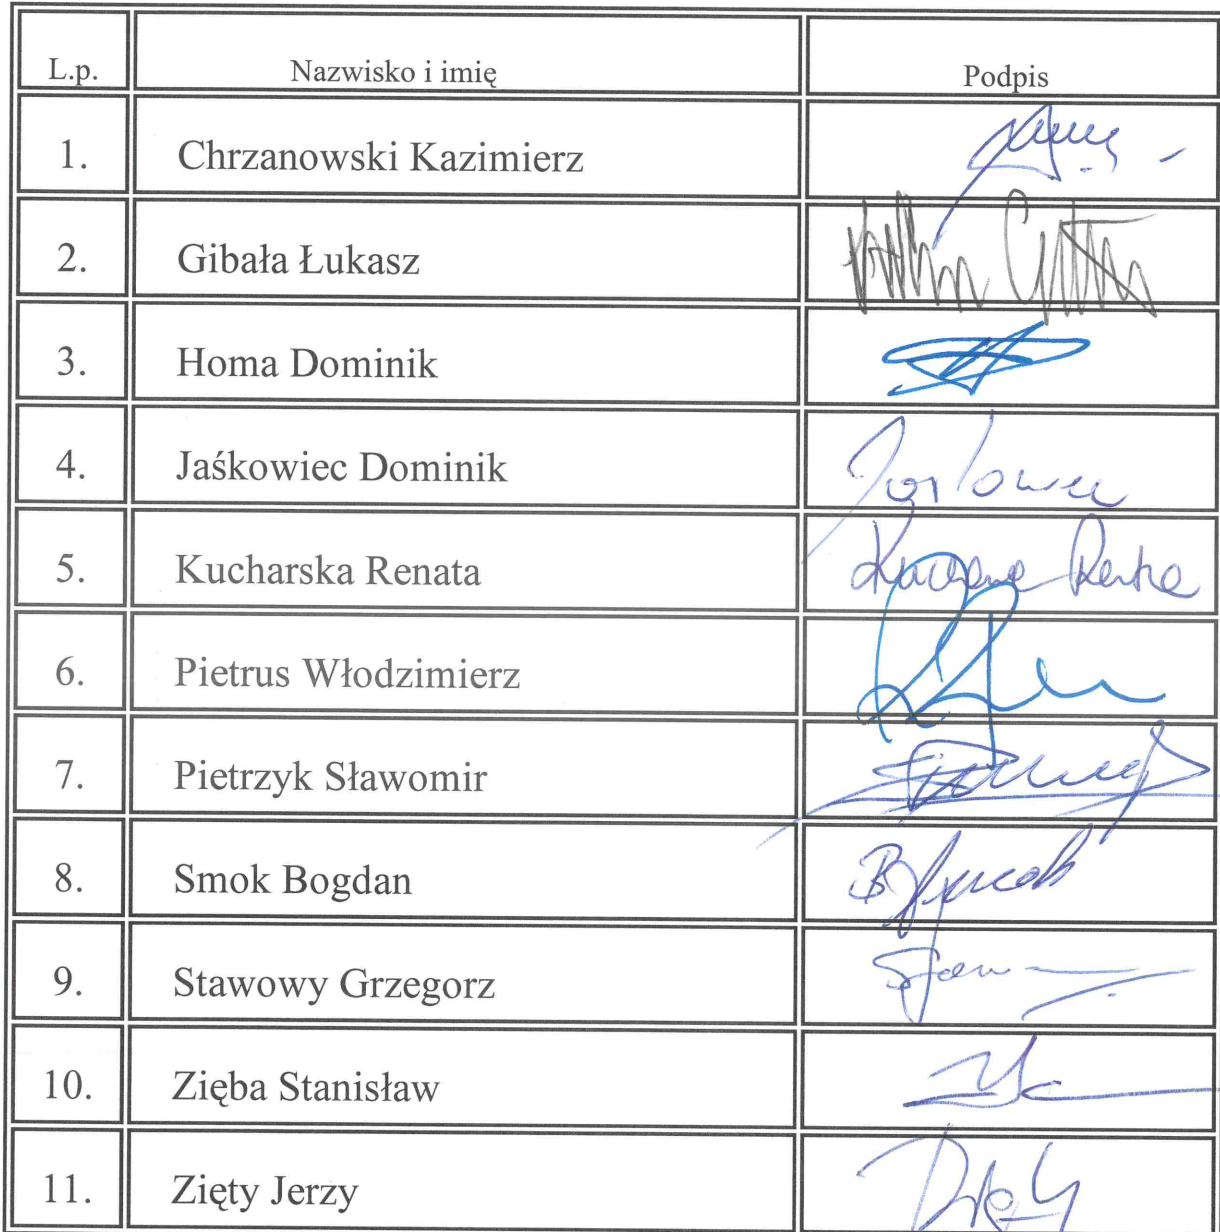 L.p. Nazwisko i imię Podpis
1. Chrzanowski Kazimierz
2. Gibała Łukasz
3. Homa Dominik
4. Jaśkowiec Dominik
5. Kucharska Renata
6. Pietrus Włodzimierz
7. Pietrzyk Sławomir
8. Smok Bogdan
9. Stawowy Grzegorz
10. Zięba Stanisław
11. Zięty Jerzy